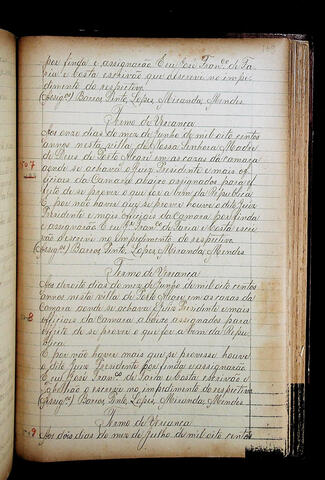 por finda e assignarão Eu José Fran.co de Fa-
ria e Costa escrivão que escrevo no impe-
dimento do respectivo
(Assig.os) Barros, Pinto, Lopes, Miranda, Mendes
Termo de Veriança
Aos onze dias do mez de Junho de mil oito centos
annos nesta villa de Nossa Senhora Madre
de Deus de Porto Alegre em as casas da camara
aonde se achava o Juiz Presidente e mais of-
ficiaes da Camara abaixo assignados para ef-
feito de se prover o que for a bem da Republica
E por não haver que se prover houve o dito Juiz
Presidente e mais officiaes da Camara por finda
e assignarão Eu J.e Fran.co de Faria e Costa escri-
vão escrevo no impedimento do respectivo
(Assig.os) Barros, Pinto, Lopes, Miranda, Mendes
Termo de Veriança
Aos dezoito dias do mez de Junho de mil oito centos
annos nesta villa de Porto Alegre em as casas da
Camara aonde se achava o Juiz Presidente e mais
officiaes da Camara abaixo assignados para
effeito de se prover o que for a bem da Repu-
blica
E por não haver mais que se provesse houve
o dito Juiz Presidente por finda e assignarão
Eu José Fran.co de Faria e Costa escrivão e
Tabellião o escrevo no impedimento do respectivo
(Assig.os) Barros, Pinto, Lopes, Miranda, Mendes
Termo de Veriança
Aos dois dias do mez de Julho de mil oito centos